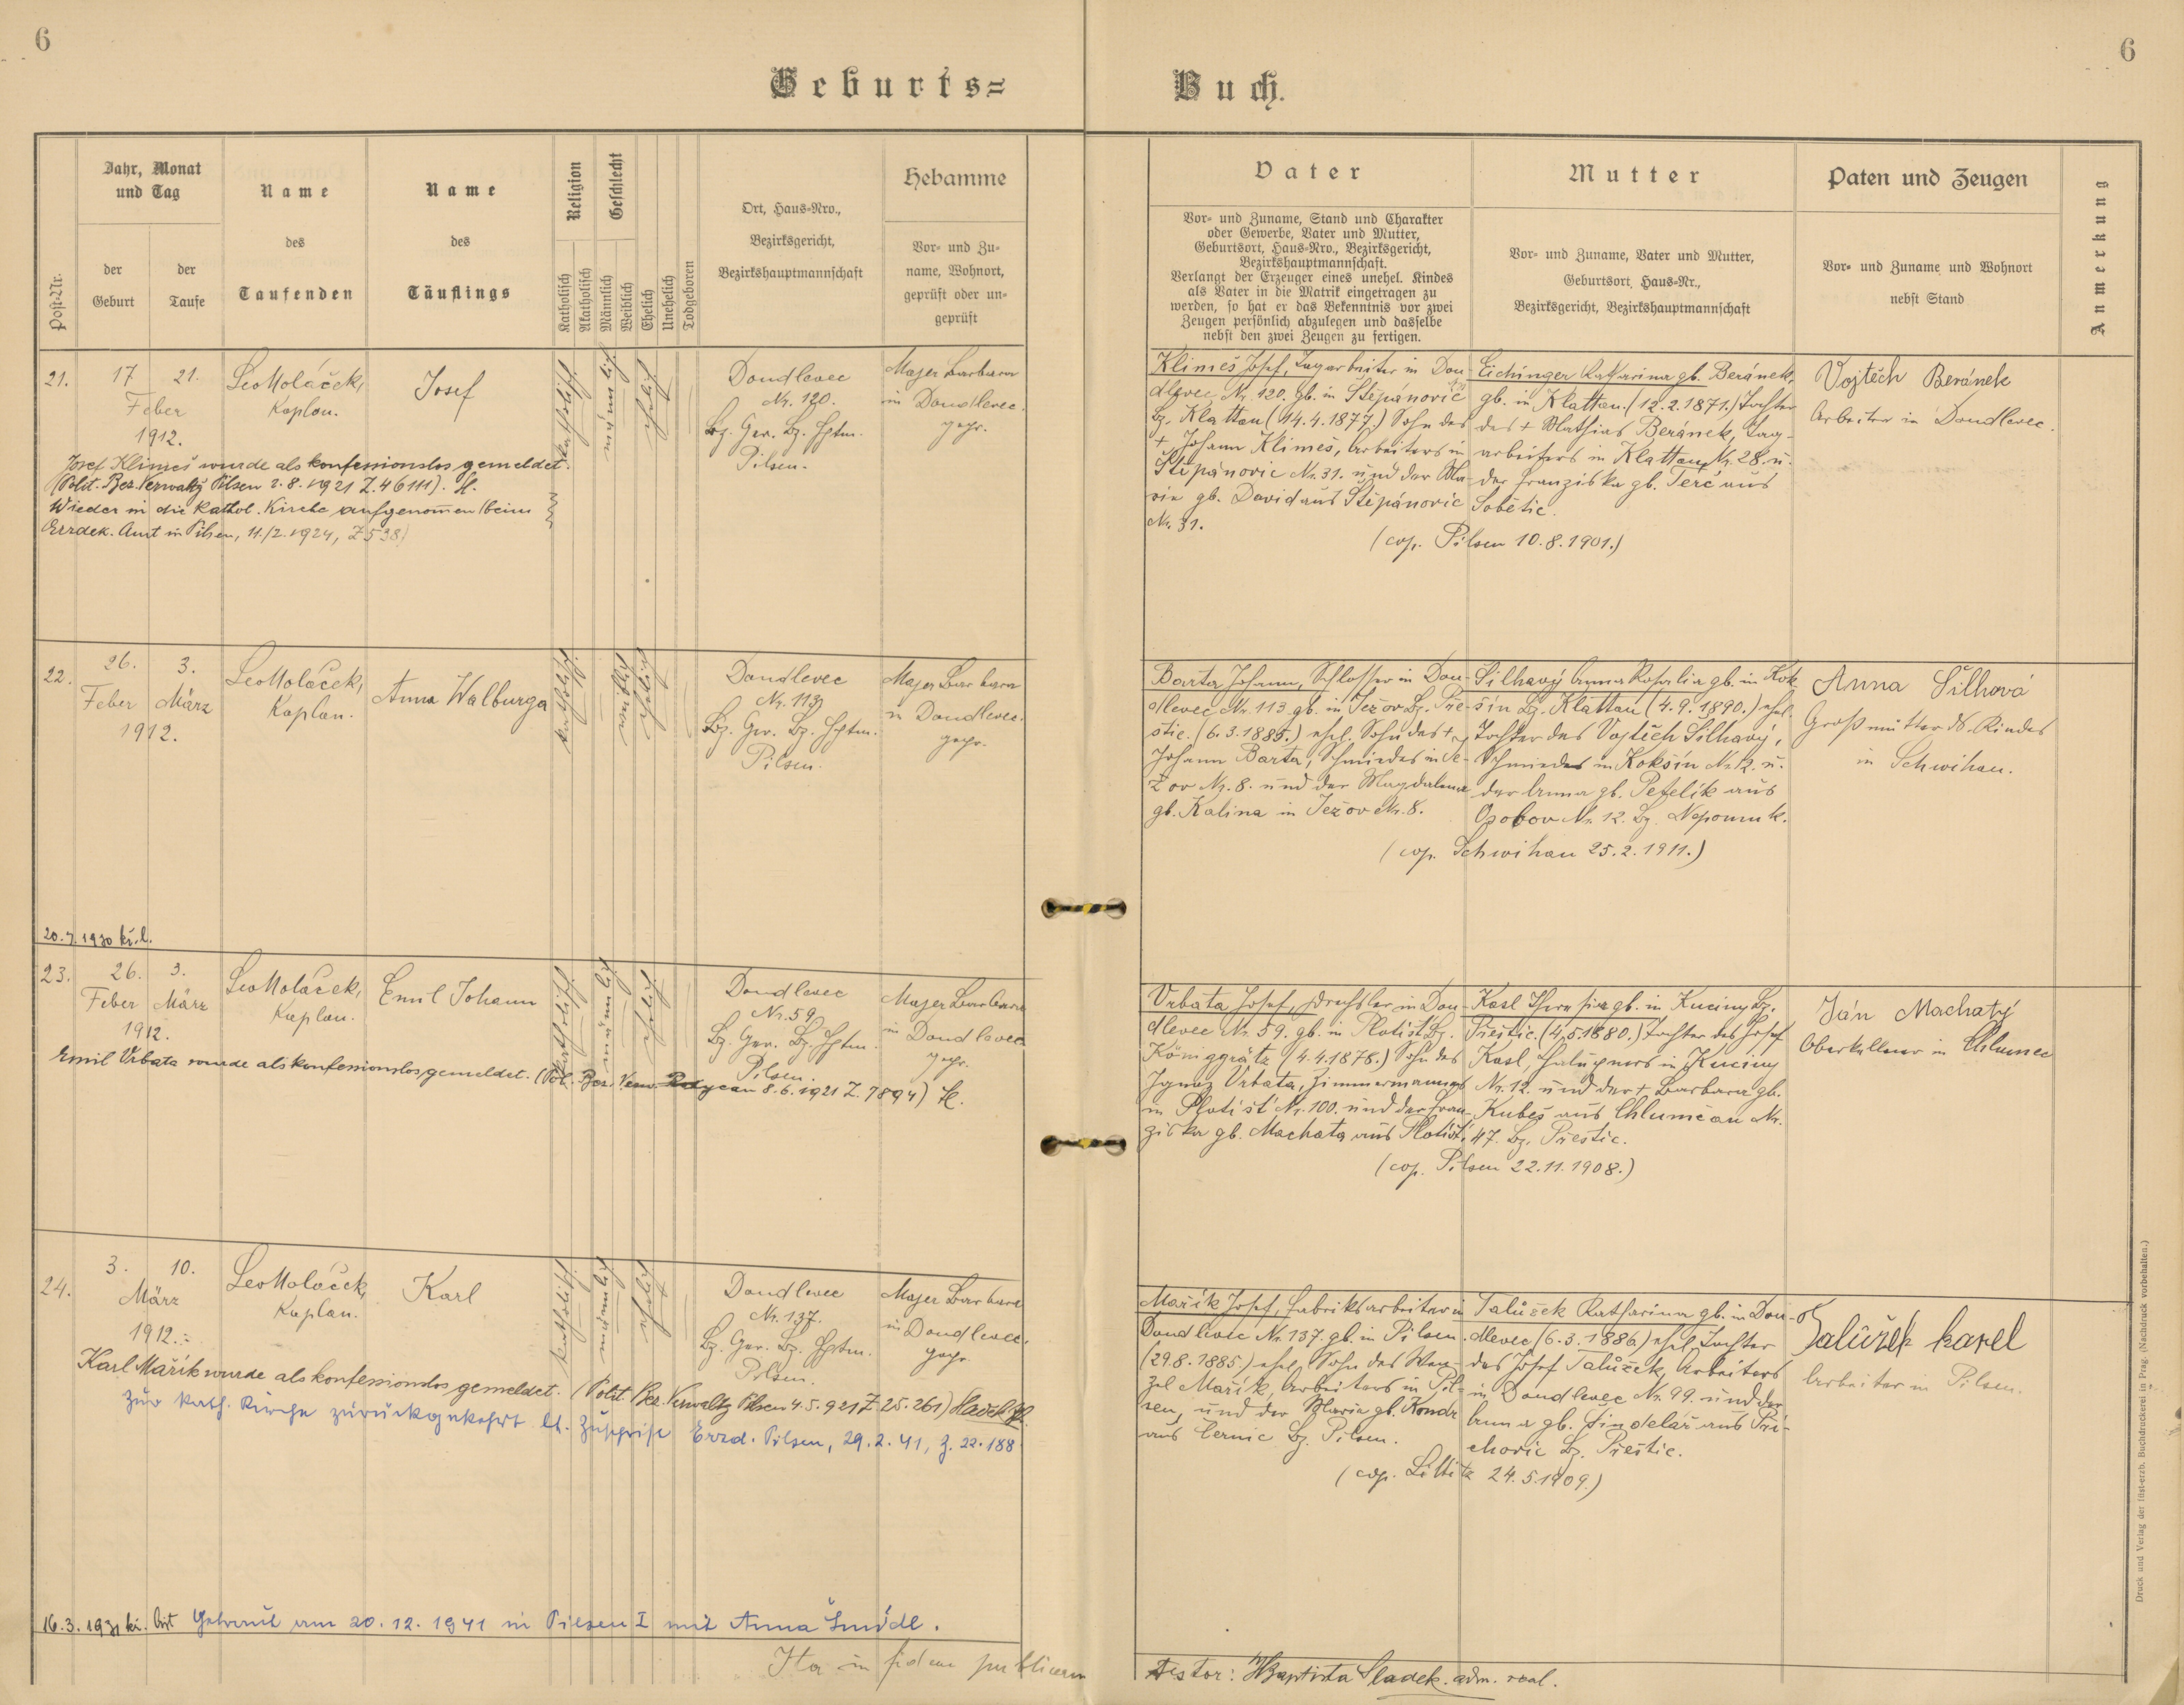 6
6
Geburts=
Buch.
Jahr, Monat
und Tag
Name
Name
Religion
Geschlecht
Hebamme
Post-Nr.
der
Geburt
der
Taufe
des
Taufenden
des
Täuflings
Katholisch
Akatholisch
Männlich
Weiblich
Ehelich
Unehelich
Todgeboren
Ort, Haus-Nro.,
Bezirksgericht,
Bezirkshauptmannschaft
Vor- und Zu-
name, Wohnort,
geprüft oder un-
geprüft
Vater
Mutter
Paten und Zeugen
Anmerkung
Vor- und Zuname, Stand und Charakter
oder Gewerbe, Vater und Mutter,
Geburtsort, Haus-Nro., Bezirksgericht,
Bezirkshauptmannschaft.
Verlangt der Erzeuger eines unehel. Kindes
als Vater in die Matrik eingetragen zu
werden, so hat er das Bekenntnis vor zwei
Zeugen persönlich abzulegen und dasselbe
nebst den zwei Zeugen zu fertigen.
Vor- und Zuname, Vater und Mutter,
Geburtsort, Haus-Nr.,
Bezirksgericht, Bezirkshauptmannschaft
Vor- und Zuname und Wohnort
nebst Stand
21.
17
21.
Feber
1912.
Leo Holáček,
Kaplan.
Josef
katholisch
männlich
ehelich
Doudlevec
Nr. 120.
Bz. Ger. Bz. Hptm.
Pilsen.
Majer Barbara
in Doudlevec.
gepr.
Josef Klimeš wurde als konfessionslos gemeldet.
(Polit. Bez. Verwaltg Pilsen 2.8.1921 Z. 46111).
Wieder in die Kathol. Kirche aufgenommen (beim
Erzdek. Amt in Pilsen, 11./2.1924, Z 538)
Klimeš Josef, Tagarbeiter in Dou-
dlevec Nr. 120. gb. in Štěpánovic
Bz. Klattau (14.4.1877.) Sohn des
+ Johann Klimeš, Arbeiters in
Štěpánovic Nr. 31. und der Ma-
ria gb. David aus Štěpánovic
Nr. 31.
Eichinger Katharina gb. Beránek,
gb. in Klattau. (12.2.1871.) Tochter
des + Mathias Beránek, Tag-
arbeiters in Klattau Nr. 28. u.
der Franziska gb. Terč aus
Sobětic.
(cop. Pilsen 10.8.1901.)
Vojtěch Beránek
Arbeiter in Doudlevec.
22.
26.
3.
Feber
März
1912.
Leo Holáček,
Kaplan.
Anna Walburga
katholisch
weiblich
ehelich
Doudlevec
Nr. 113
Bz. Ger. Bz. Hptm.
Pilsen.
Majer Barbara
in Doudlevec.
gepr.
Barta Johann, Schlosser in Dou-
dlevec Nr. 113. gb. in Ježov Bz. Pře-
štic. (6.3.1885.) ehel. Sohn des +
Johann Barta, Schmiedes in Je-
žov Nr. 8. und der Magdalena
gb. Kalina in Ježov Nr. 8.
Silhavý Anna Rosalia gb. in Kok-
šín Bz. Klattau (4.9.1890.) ehel.
Tochter des Vojtěch Silhavý,
Schmiedes in Kokšín Nr. 12. u.
der Anna gb. Petelík aus
Nr. 12. Bz. Nepomuk.
(cop. Schwihau 25.2.1911.)
Anna Šilhavá
Großmutter d. Kindes
in Schwihau.
20.7.1930 kř.l.
23.
26.
3.
Feber
März
1912.
Leo Holáček,
Kaplan.
Emil Johann
katholisch
männlich
ehelich
Doudlevec
Nr. 59
Bz. Ger. Bz. Hptm.
Pilsen.
Majer Barbara
in Doudlevec
gepr.
Emil Vrbata wurde als konfessionslos gemeldet. (Pol. Bez. Verw. Rokycan 8.6.1921 Z. 7894)
Vrbata Josef, Drechsler in Dou-
dlevec Nr. 59. gb. in Plotišt Bz.
Königgrätz (4.4.1878.) Sohn des
Ignaz Vrbata, Zimmermannes
in Plotišt Nr. 100. und der Fran-
ziska gb. Machata aus Plotišt.
Kasl Theresia gb. in Kuciny Bz.
Přeštic. (4.5.1880.) Tochter des Josef
Kasl, Chalupners in Kuciny
Nr. 12. und der + Barbara gb.
Kubeš aus Chlumčan Nr.
47. Bz. Přeštic.
(cop. Pilsen 22.11.1908.)
Ján Machatý
Oberkellner in Chlumec
24.
3.
10.
März
1912.
Leo Holáček,
Kaplan.
Karl
katholisch
männlich
ehelich
Doudlevec
Nr. 137.
Bz. Ger. Bz. Hptm.
Pilsen.
Majer Barbara
in Doudlevec.
gepr.
Karl Mařík wurde als konfessionslos gemeldet. (Polit. Bez. Verwaltg Pilsen 4.5.921 Z. 25.261)
Zur kath. Kirche zurückgekehrt lt. Zuschrift Erzd. Pilsen, 29.2.41, Z. 22.188
Mařík Josef, Fabriksarbeiter in
Doudlevec Nr. 137. gb. in Pilsen.
(29.8.1885.) ehel. Sohn des Wen-
zel Mařík, Arbeiters in Pil-
sen, und der Maria gb.
aus Černic Bz. Pilsen.
Talůžek Katharina gb. in Dou-
dlevec (6.3.1886.) ehel. Tochter
des Josef Talůžek, Arbeiters
in Doudlevec Nr. 99. und der
Anna gb. Šindelář aus Při-
chovic Bz. Přeštic.
(cop. Littitz 24.5.1909.)
Talůžek Karel
Arbeiter in Pilsen.
16.3.1931 kř. list Getraut am 20.12.1941 in Pilsen I mit Anna Šmídl.
Ita in fidem publicam
Testor: Baptista Sladek. adm. real.
Druck und Verlag der fürst-erzb. Buchdruckerei in Prag. (Nachdruck vorbehalten.)